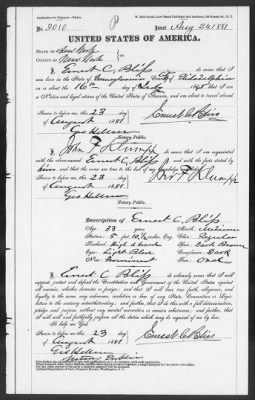 Issued Aug 24 1881
No. 9010
UNITED STATES OF AMERICA.
STATE OF New York
COUNTY OF New York
I, Ernest C. Bliss do swear that I
was born in the State of Pennsylvania City Philadelphia
on or about the 16th day of July 1848; that I am
a Native and loyal citizen of the United States, and about to travel abroad
Sworn to before me this 23 day
of August 1881
Ernest C. Bliss
Geo Hillen
Notary Public.
I, John F. Klumpp
with the above-named Ernest C. Bliss and with the facts stated by
him and that the same are true to the best of my knowledge
Sworn to before me this 23 day
of August 1881
John F. Klumpp
Geo Hillen
Notary Public.
Description of Ernest C. Bliss
Age: 33 years
Mouth: Medium
Stature: 5 ft. 10 1/2 inches, Eng.
Chin: Regular
Forehead: High & broad
Hair: Dark Brown
Eyes: Light Blue
Complexion: Dark
Nose: Prominent
Face: Oval
I, Ernest C. Bliss do solemnly swear that I will
support, protect and defend the Constitution and Government of the United States against
all enemies, whether domestic or foreign; and that I will bear true faith, allegiance, and
loyalty to the same, any ordinance, resolution or law of any State, Convention or Legis-
lature to the contrary notwithstanding; and further, that I do this with a full determination,
pledge and purpose, without any mental reservation or evasion whatsoever; and further, that
I will well and faithfully perform all the duties which may be required of me by law.
So help me God.
Sworn to before me this 23 day
of August 1881
Ernest C. Bliss
Geo Hillen
Notary Public